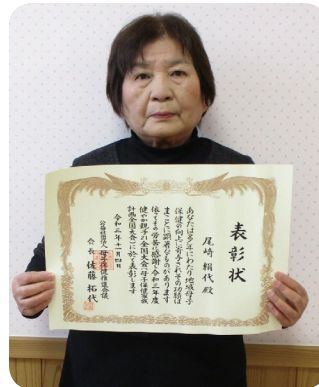 表彰状
尾崎 絹代 殿
あなたは多年にわたり地域母子
保健の向上に寄与されその功績は
まことに顕著なものがあります
依ってその労苦に感謝し令和三年度
健やか親子21全国大会(母子保健家族
計画全国大会)に於て表彰します
令和三年十一月四日
公益社団法人 母子保健推進会議
会長 佐藤 拓代